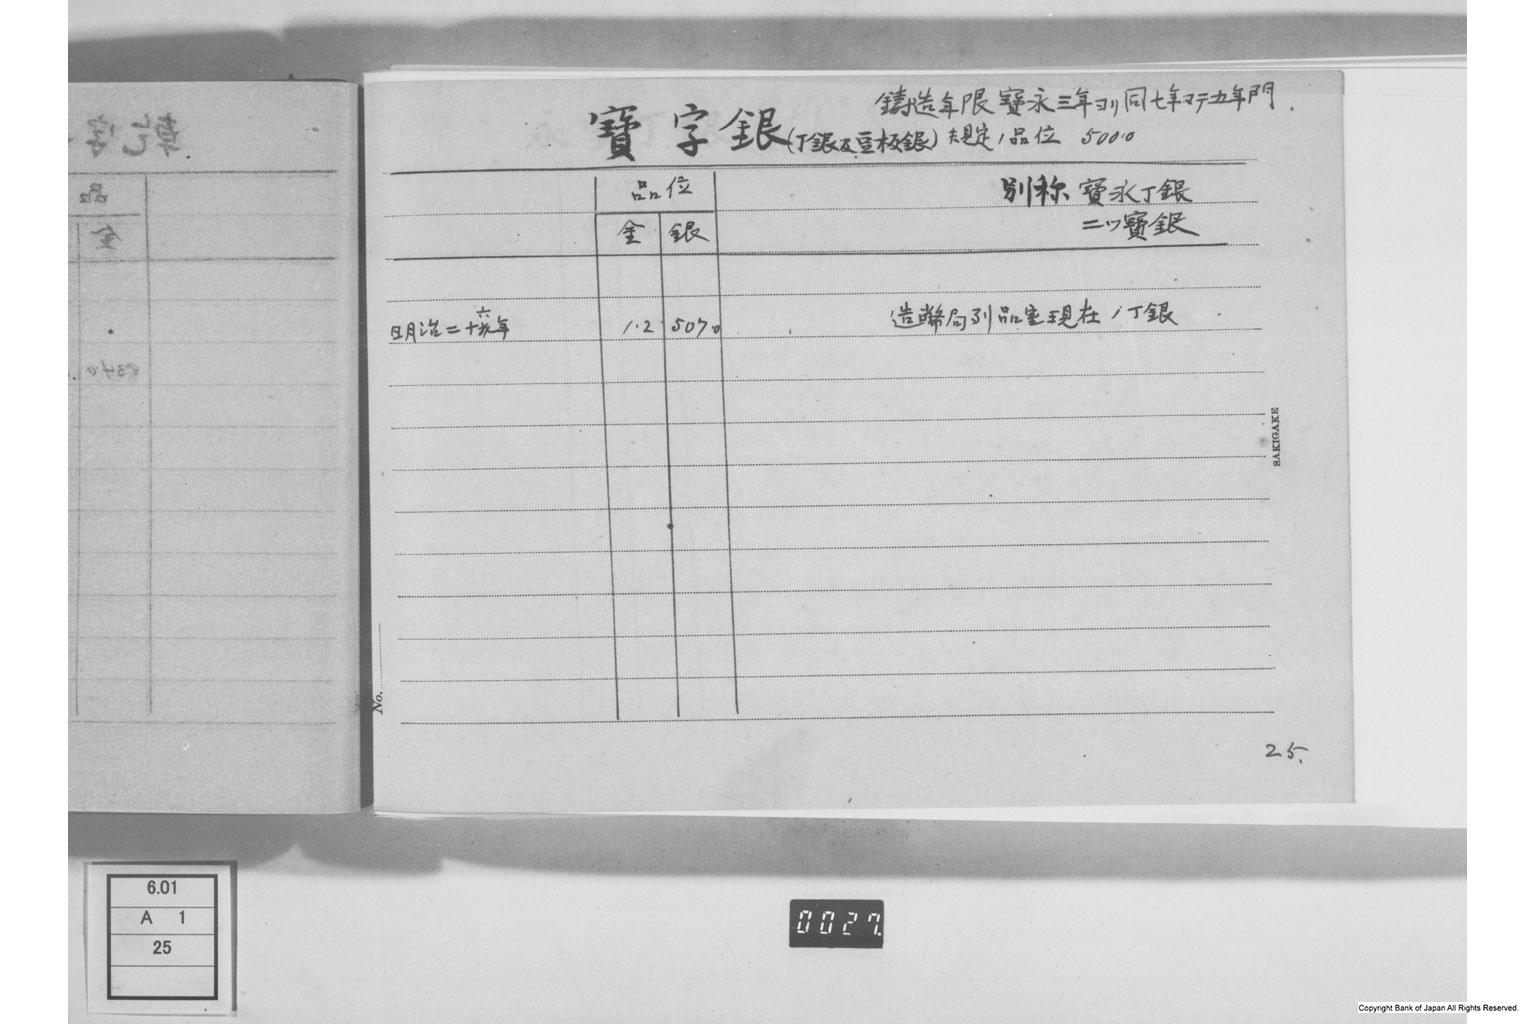 鋳造年限 寳永三年ヨリ同七年マデ五年間
寳字銀(丁銀及豆板銀) 規定ノ品位 500.0
品位
別称 寳永丁銀
金 銀
二ツ寳銀
明治二十六年 1.2 507.0 造幣局列品室現在ノ丁銀
SAKIGAKE
No.
25.
6.01
A 1
25
0027
Copyright Bank of Japan All Rights Reserved.